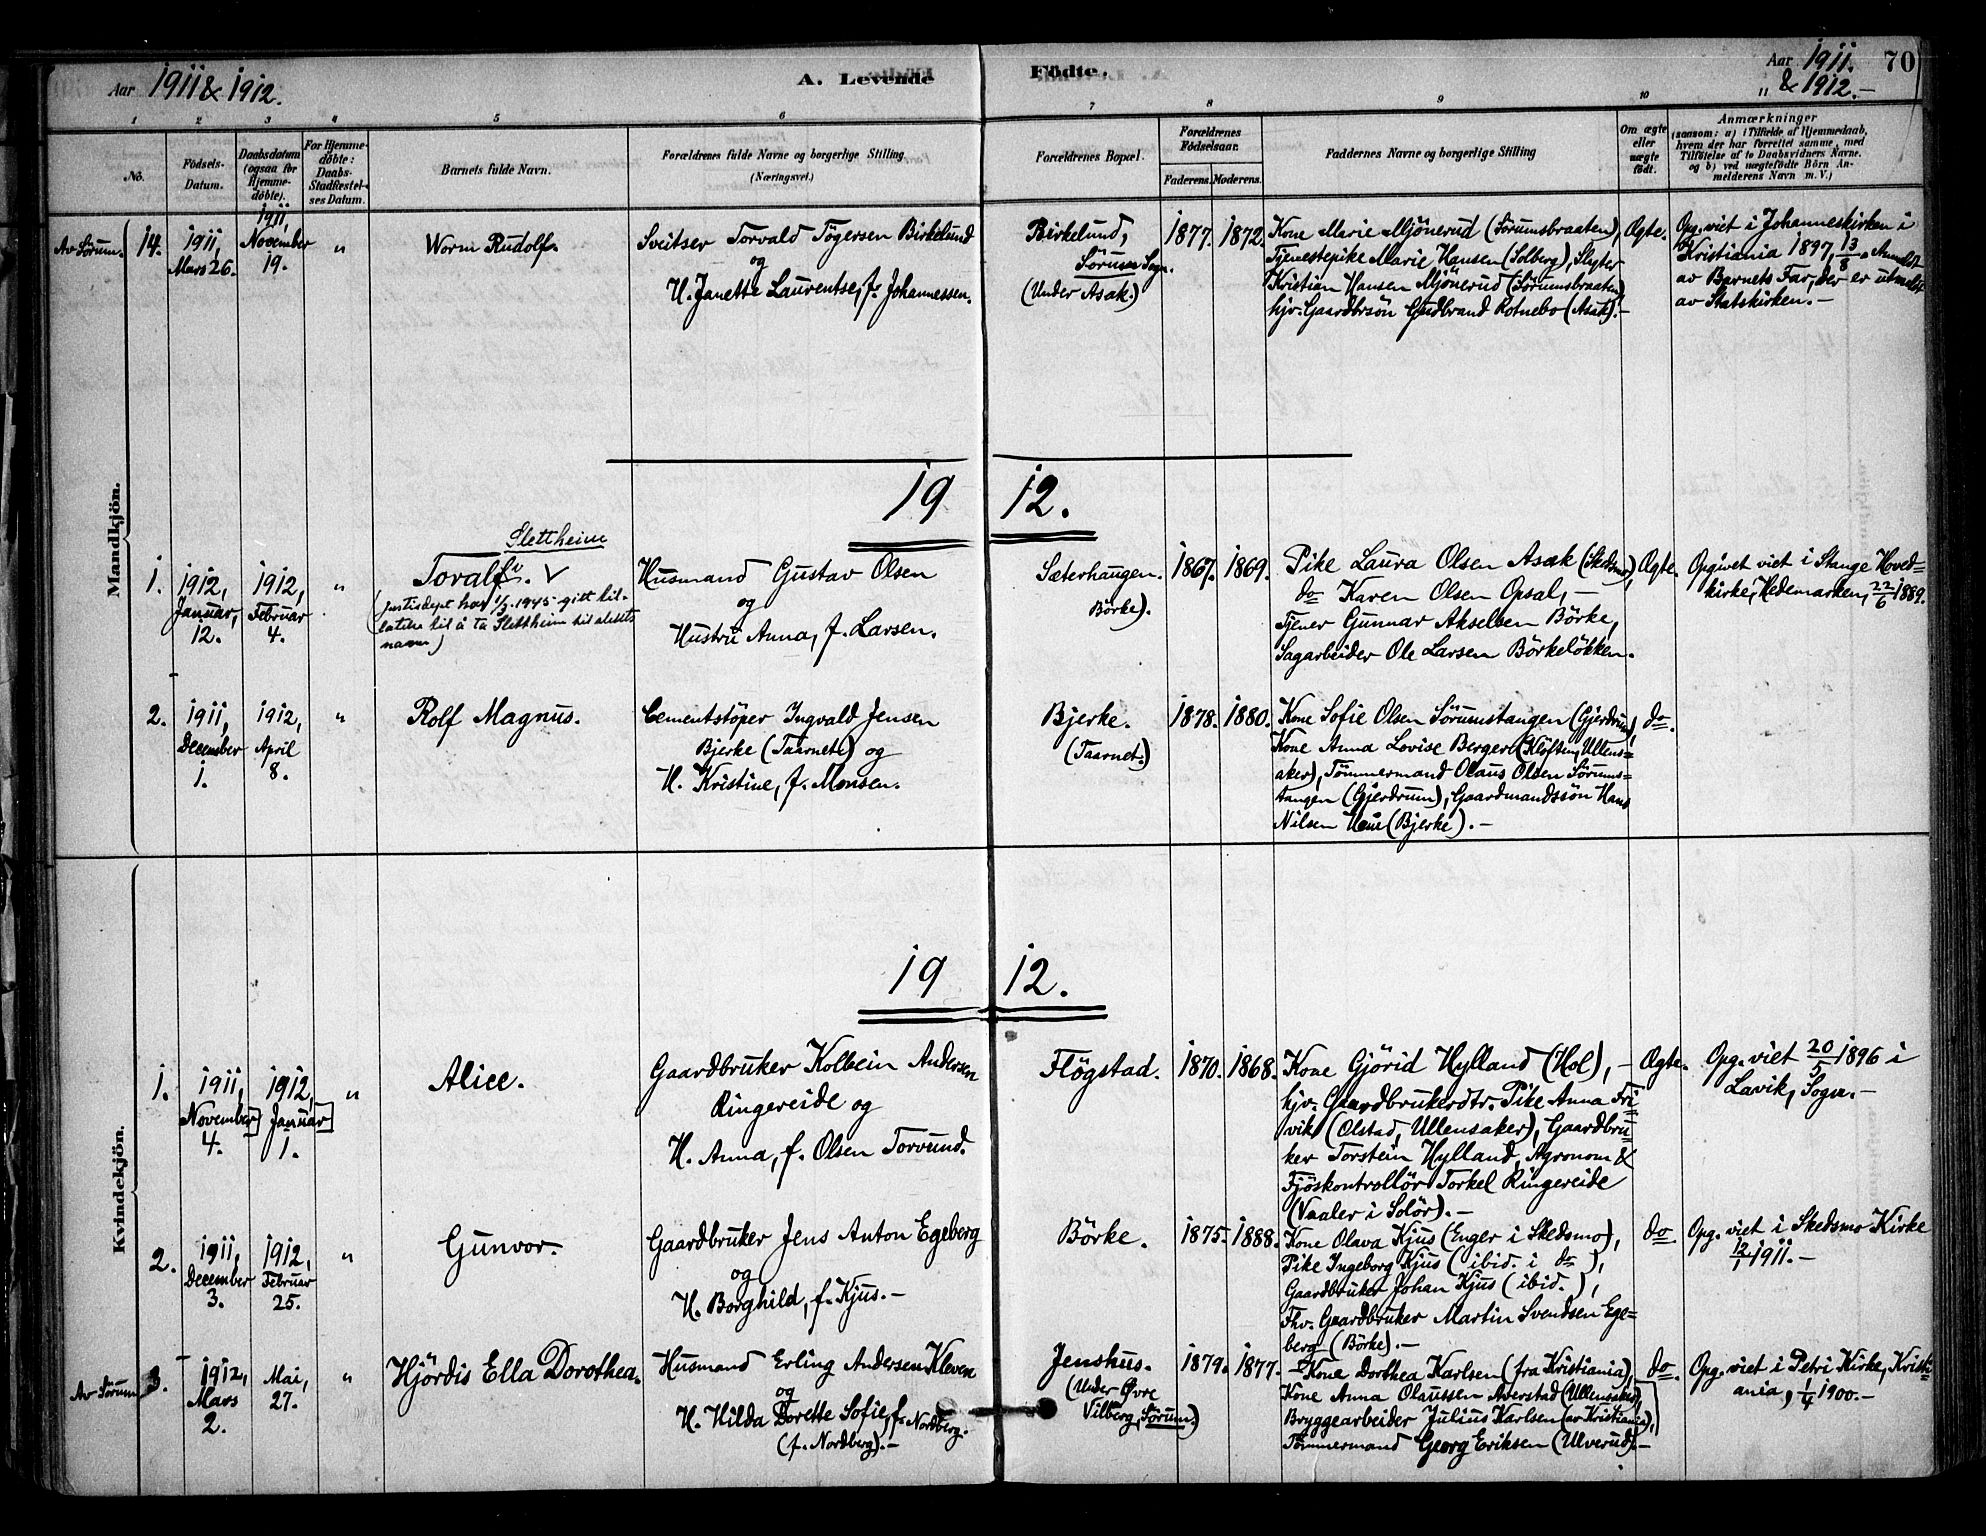 Aar 1911 & 1912.
A. Levende
Födte.
Aar 1911.
„ & 1912.—
70
1 2 3 4 5 6 7 8 9 10
No.
Födsels-
Datum.
Daabsdatum
(ogsaa for
Hjemme-
döbte).
For Hjemme-
döbte:
Daabs-
Stadfæstel-
ses Datum.
Barnets fulde Navn.
Forældrenes fulde Navne og borgerlige Stilling
(Næringsvei.)
Forældrenes Bopæl.
Forældrenes
Födselsaar.
Faderens. Moderens.
Faddernes Navne og borgerlige Stilling
Om ægte
eller
uægte
födt.
Anmærkninger
(saasom: a) i Tilfælde af Hjemmedaab,
hvem der har forrettet samme, med
Tilföielse af to Daabsvidners Navne.
og b) ved uægtefödte Börn An-
melderens Navn m. V.)
Mandkjön.
Av Sörum.
14.
1911,
Mars 26.
1911,
November
19.
„
Worm Rudolf.
Sveitser Torvald Tögersen Birkelund
og
H. Janette Laurentse, f. Johannessen.
Birkelund,
Sörum Sogn.
(Under Asak.)
1877.
1872.
Kone Marie Mjönerud (Sörumsbraaten),
Tjenestepike Marie Hansen (Solberg), Slyter
Kristian Hansen Mjönerud (Sörumsbraaten)
hjv. Gaardbrsön Gudbrand Rotnebo (Asak).—
Ægte.
Opg. viet i Johanneskirken i
Kristiania 1897, 13/8. Anmeldt
av Barnets Far, der er utmeldt
av Statskirken.—
19 12.
1.
1912,
Januar,
12.
1912,
Februar
4.
„
Slettheim
Toralf. V
(Justisdept har 1/3. 1945 gitt til-
latelse til å ta Slettheim til slekts
navn)
Husmand Gustav Olsen
og
Hustru Anna, f. Larsen.
Sæterhaugen.
Börke).
1867.
1869.
Pike Laura Olsen Asak (Skedsmo),
do Karen Olsen Opsal,—
Tjener Gunnar Akselsen Börke,
Sagarbeider Ole Larsen Börkelökken.
Ægte.
Opgivet viet i Stange Hoved-
kirke, Hedemarken, 22/6 1889.
2.
1911,
December
1.
1912,
April
8.
„
Rolf Magnus.
Cementstöper Ingvald Jensen
Bjerke (Taarnet) og
H. Kristine, f. Monsen.
Bjerke.
(Taarnet.)
1878.
1880.
Kone Sofie Olsen Sörumstangen (Gjerdrum),
Kone Anna Lovise Berger (Klöften, Ullens-
aker), Tömmermand Olaus Olsen Sörums-
tangen (Gjerdrum), Gaardmandssön Hans
Nilsen (Bjerke).—
do.
Kvindekjön.
19 12.
1.
1911,
November
4.
1912,
Januar
1.
„
Alice.
Gaardbruker Kolbein Andersen
Ringereide og
H. Anna, f. Olsen Torvund.
Flögstad.
1870.
1868.
Kone Gjörid Hylland (Hol),—
hjv. Gaardbrukerdtr. Pike Anna Tri-
vik (Olstad, Ullensaker), Gaardbru-
ker Torstein Hylland, Agronom &
Fjöskontrollör Torkel Ringereide
(Vaaler i Solör).—
Ægte.
Opg. viet 20/5 1896 i
Lavik, Sogn.—
2.
1911,
December
3.
1912,
Februar
25.
„
Gunvor.
Gaardbruker Jens Anton Egeberg
og
H. Borghild, f. Kjus.—
Börke.
1875.
1888.
Kone Olava Kjus (Enger i Skedsmo),
Pike Ingeborg Kjus (ibid. i do),
Gaardbruker Johan Kjus (ibid.),
Fhv. Gaardbruker Martin Svendsen Ege-
berg (Börke).—
do.
Opg. viet i Skedsmo Kirke
12/1 1911.—
Av Sörum
3.
1912,
Mars
2.
Mai,
27.
„
Hjördis Ella Dorothea.
Husmand Erling Andersen Kleven
og
H. Hilda Dorette Sofie, f. Nordberg.
(f. Nordberg).—
Jenshus.
(Under Øvre
Vilberg, Sörum.)
1879.
1877.
Kone Dorthea Karlsen (fra Kristiania),
Kone Anna Olaussen Averstad (Ullensaker),
Bryggearbeider Julius Karlsen (av Kristiania),
Tömmermand Georg Eriksen (Ulverud).—
do.
Opg. viet i Petri Kirke, Kristi-
ania, 1/4 1900.—